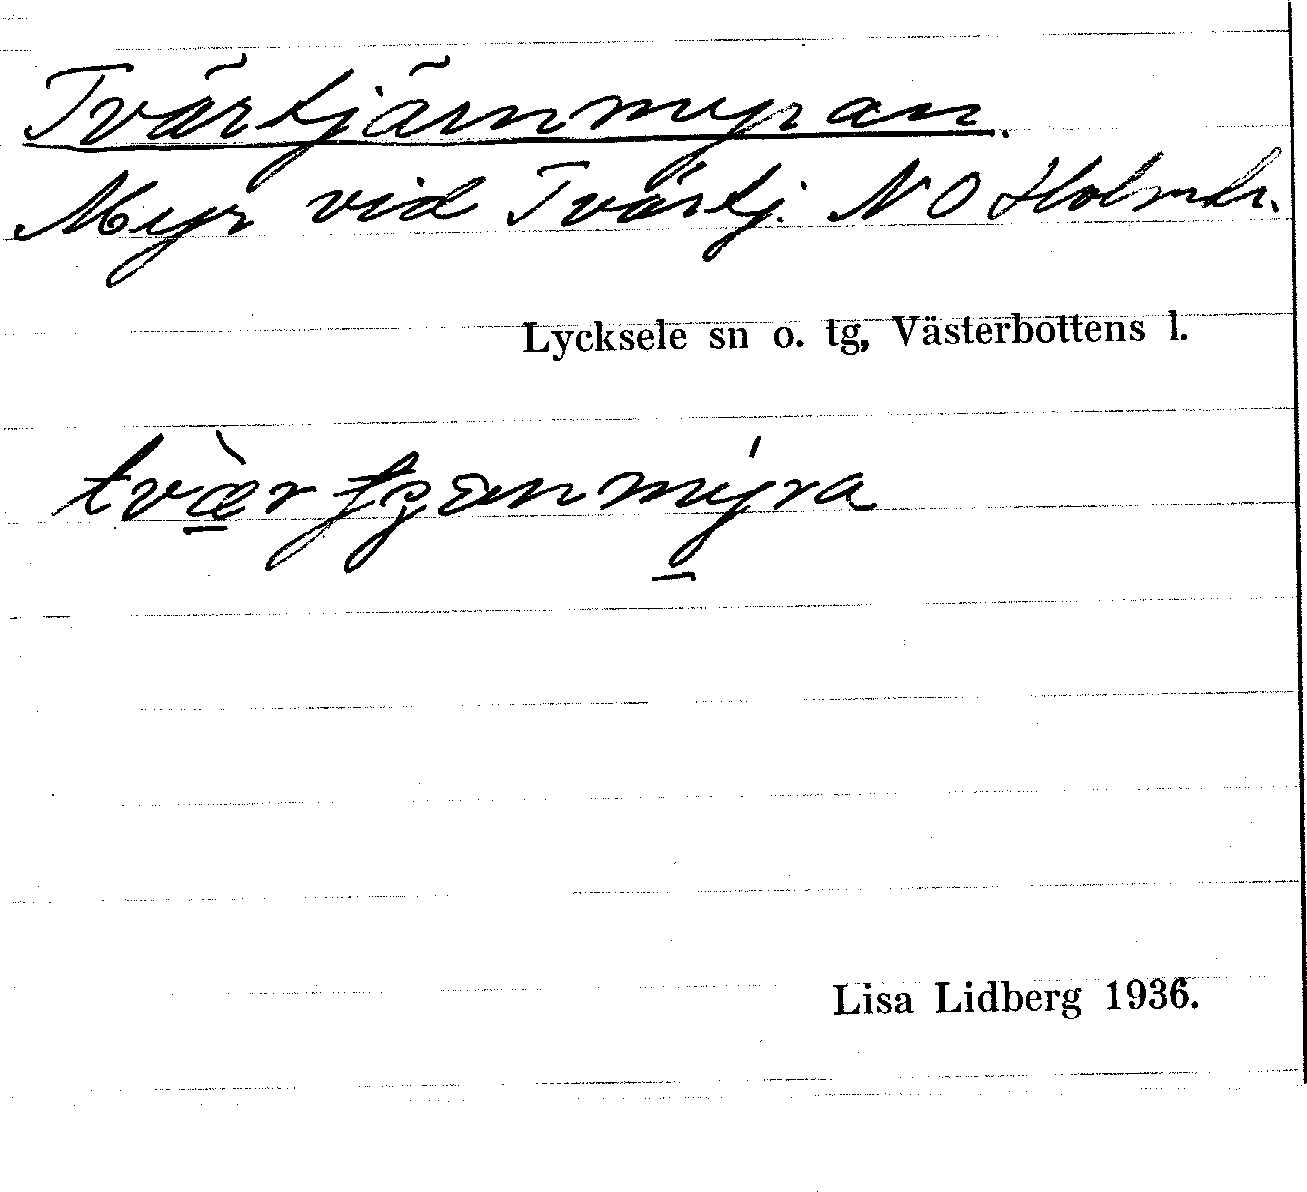 Tvärtjärnmyran.
Myr vid Tvärtj. N O Holmtr.
Lycksele sn o. tg, Västerbottens l.
Lisa Lidberg 1936.